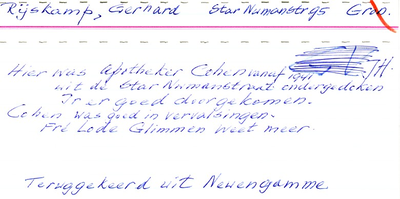 Rijskamp, Gerhard Star Numanstr 95 Gron.
Hier was apotheker Cohen vanaf 1941
uit de Star Numanstraat ondergedoken
Is er goed doorgekomen.
Cohen was goed in vervalsingen.
Frl Lode Glimmen weet meer.
Teruggekeerd uit Neuengamme